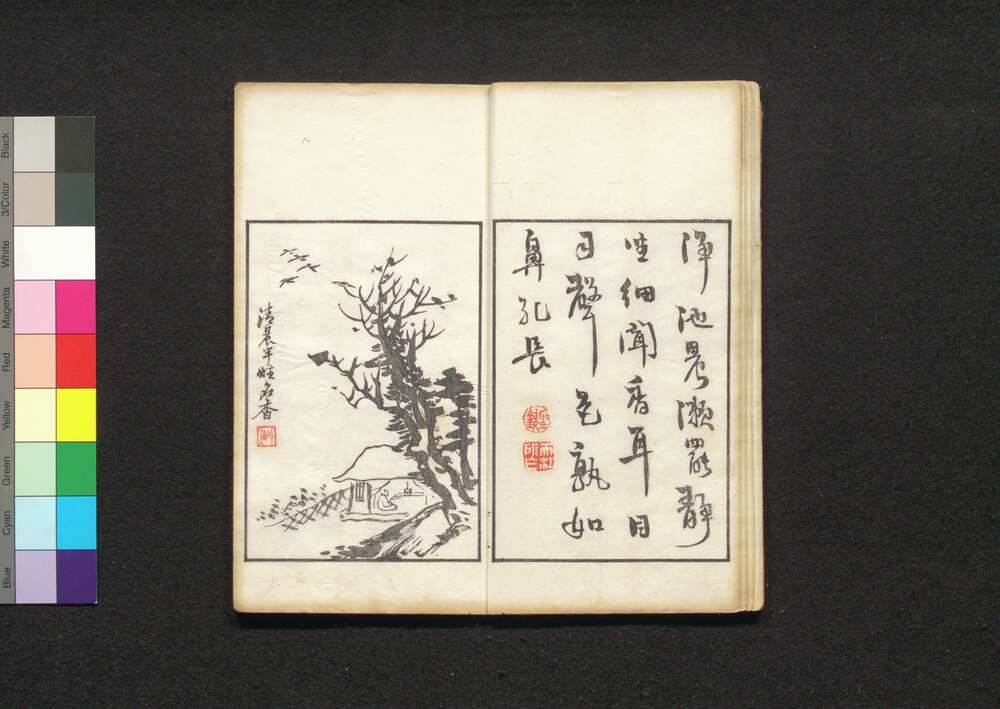 淨池晨漱罷靜
坐細聞香耳目
自聲色孰如
鼻孔長
清晨半炷名香
Black
3/Color
White
Magenta
Red
Yellow
Green
Cyan
Blue